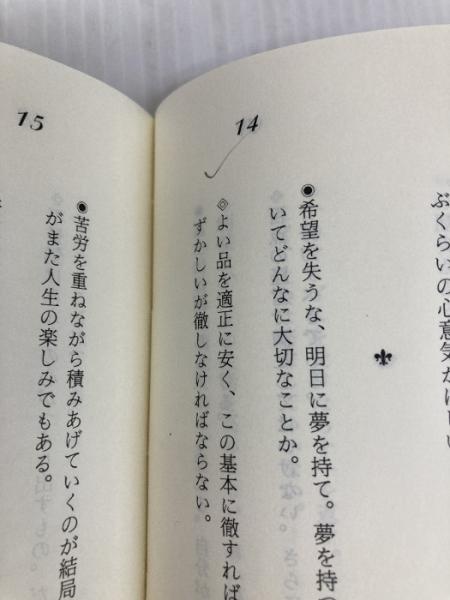 ぶくらいの心意気が
14
◉希望を失うな、明日に夢を持て。夢を持つ
いてどんなに大切なことか。
◎よい品を適正に安く、この基本に徹すれば
ずかしいが徹しなければならない。
15
◉苦労を重ねながら積みあげていくのが結局
がまた人生の楽しみでもある。